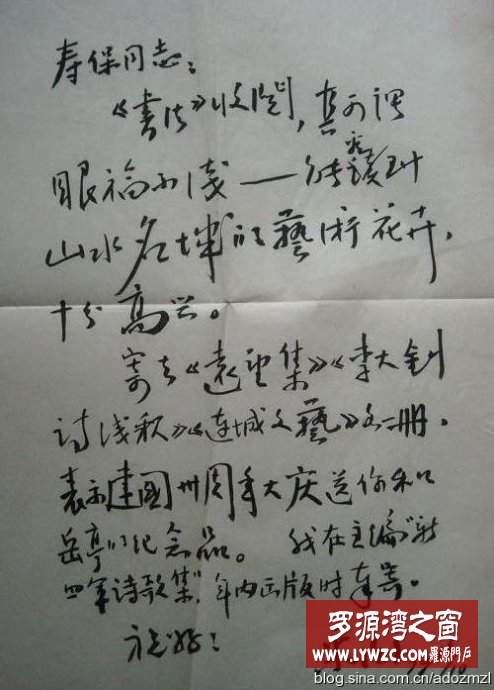 寿保同志：
《书法》收阅，真可谓
眼福不浅——能读到
山水名城的藝術花卉，
十分高兴。
寄去《远望集》《李大钊
诗浅释》《连城文藝》各二册，
表示建國卅周年大庆送你和
岳亭的纪念品。 我在主编“新
四军诗歌集”，年内出版时奉寄。
祝好！
罗源湾之窗
WWW.LYWZC.COM 羅源門戶
blog.sina.com.cn/adozmzl